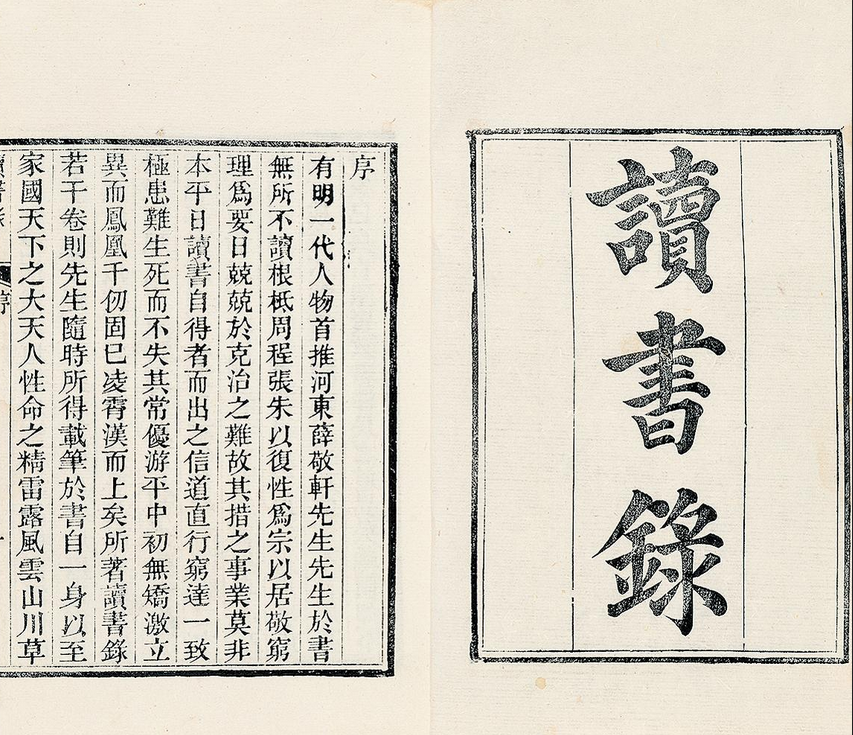 讀書錄
序
有明一代人物首推河東薛敬軒先生先生於書
無所不讀根柢周程張朱以復性爲宗以居敬窮
理爲要日兢兢於克治之難故其措之事業莫非
本平日讀書自得者而出之信道直行窮達一致
極患難生死而不失其常優游平中初無矯激立
異而鳳凰千仞固已凌霄漢而上矣所著讀書錄
若干卷則先生隨時所得載筆於書自一身以至
家國天下之大天人性命之精雷露風雲山川草
讀書錄
序